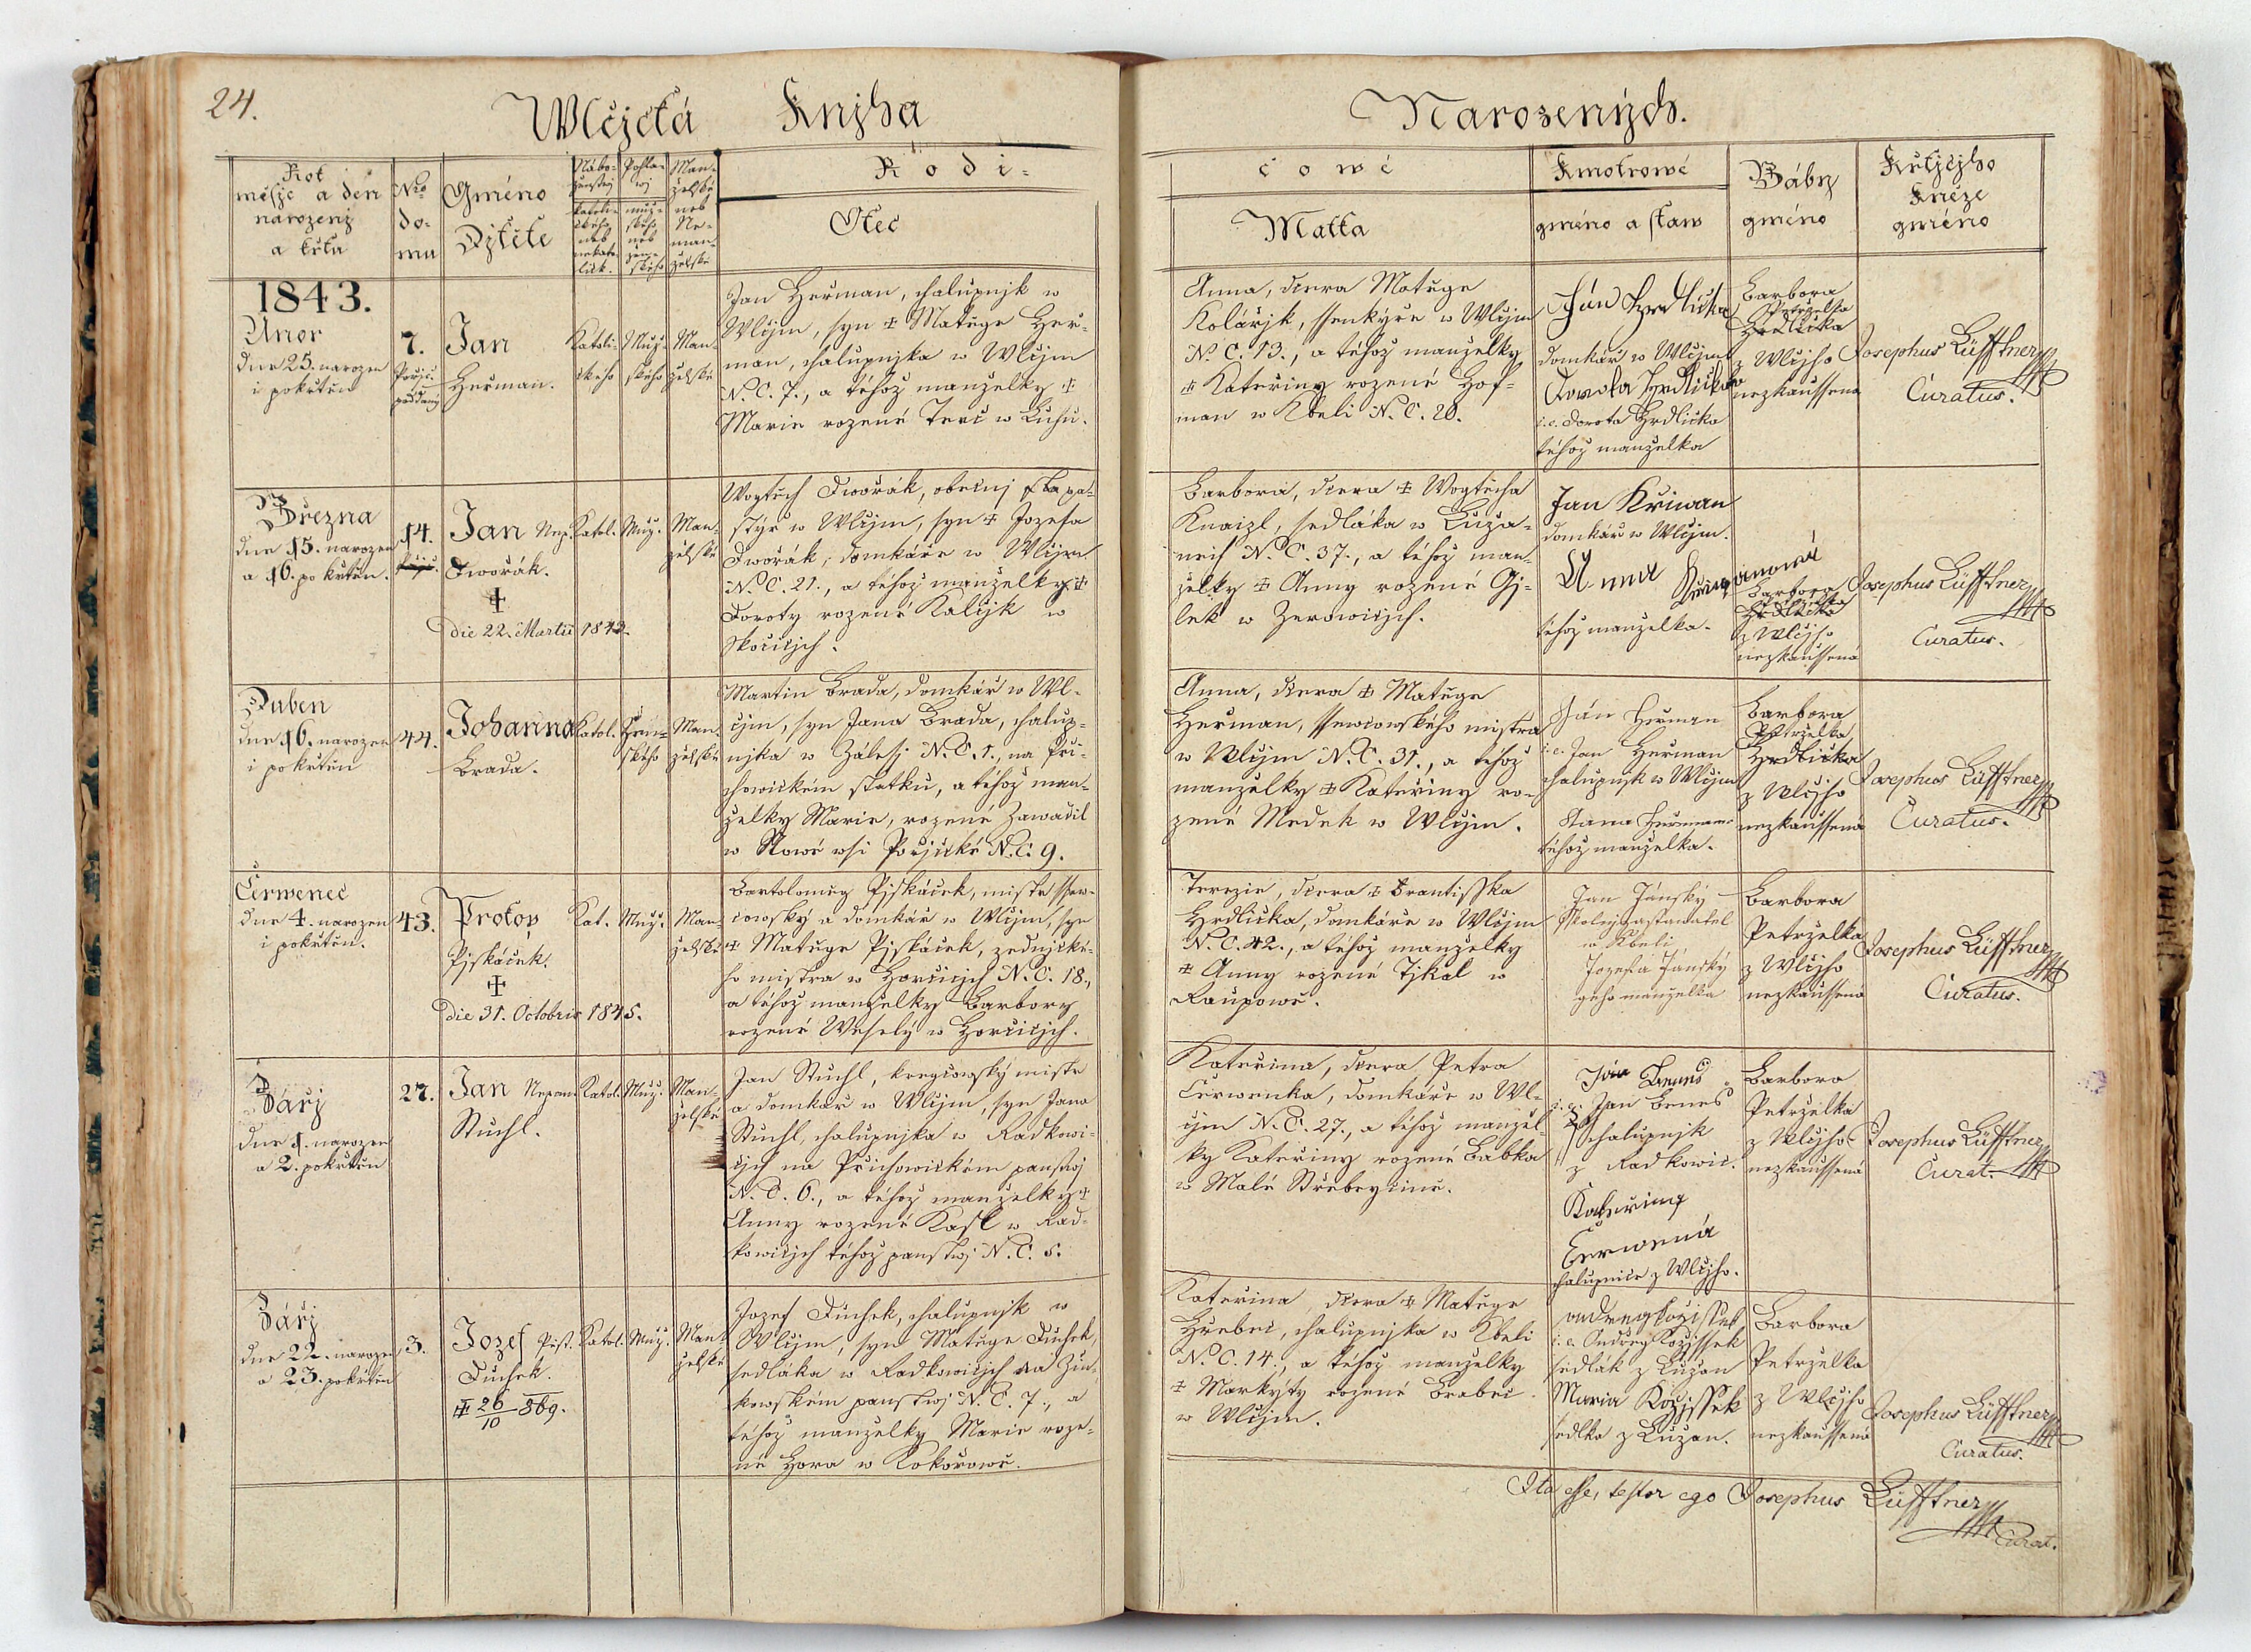 24.
Wlčjctá Knjha
Narozených.
Rok
měsýc a den
narozenj
a křtu
Nro
do-
mu
Gméno
Djtěte
Nábo-
ženstwj
katoli-
ckého
neb
nekato-
lick.
Pohla-
wj
muž-
ského
neb
žen-
ského
Man-
želské
neb
Ne-
man-
želské
Rodi-
Otec
cowé
Matka
Kmotrowé
gméno a staw
Báby
gméno
Křtjcýho
Kněze
gméno
1843.
Unor
dne 25. narozen
i pokřtěn
7.
Jan
Heřman.
Katoli-
ckého
Muž-
ského
Man-
želské
Jan Heřman, chalupnjk w
Wlčjm, syn ‡ Matěge Heř-
man, chalupnjka w Wlčjm
N. C. 7., a téhož manželky ‡
Marie rozené Terč w Luhu.
Anna, dcera Matěge
Kolářjk, ssenkýře w Wlčjm
N. C. 13., a téhož manželky
‡ Kateřiny rozené Hof-
man w Kbeli N. C. 20.
Ján Hrdlička
domkář w Wlčjm
Dorota Hrdlička
i. e. Dorota Hrdlička
téhož manželka
Barbora
Petrželka
Hrdlička
z Wlčjho
nezkaussená
Josephus Lüfftner
Curatus.
Března
dne 15. narozen
a 16. pokřtěn.
14.
Jan Nep.
Dwořák.
‡
die 22. Martii 1843.
Katol.
Muž.
Man-
želské
Wogtěch Dwořák, obecnj pa-
stýř w Wlčjm, syn ‡ Jozefa
Dwořák, domkáře w Wlčjm
N. C. 21., a téhož manželky ‡
Doroty rozené Kalčjk w
Skočicjch.
Barbora, dcera ‡ Wogtěcha
Knaizl, sedláka w Luža-
nech N. C. 37., a téhož man-
želky ‡ Anny rozené Gj-
lek w Zerowicjch.
Jan Křiwan
domkář w Wlčjm.
Anna Křiwanowá
téhož manželka.
Barbora
Hrdlička
z Wlčjho
nezkaussená
Josephus Lüfftner
Curatus.
Duben
dne 16. narozen
i pokřtěn
44.
Johanna
Brada.
Katol.
Žen-
ského
Man-
želské
Martin Brada, domkář w Wl-
čjm, syn Jana Brada, chalup-
njka w Zálesj N. C. 1., na Při-
chowickém statku, a téhož man-
želky Marie, rozené Zawadil
w Nowé wsi Pořjčké N. C. 9.
Anna, dcera ‡ Matěge
Heřman, ssewcowského mistra
w Wlčjm N. C. 31., a téhož
manželky ‡ Kateřiny ro-
zené Medek w Wlčjm.
Ján Herman
i. e. Jan Heřman
chalupnjk w Wlčjm
téhož manželka.
Barbora
Petrželka
Hrdlička
z Wlčjho
nezkaussená
Josephus Lüfftner
Curatus.
Čerwenec
dne 4. narozen
i pokřtěn.
43.
Prokop
Pjskáček.
‡
die 31. Octobris 1845.
Kat.
Muž.
Man-
želské
Bartoloměg Pjskáček, mistr ssew-
cowský a domkář w Wlčjm, syn
‡ Matěge Pjskáček, zednjcké-
ho mistra w Horčicjch N. C. 18.,
a téhož manželky Barbory
rozené Weselý w Horčicjch.
Terezie, dcera ‡ Frantisska
Hrdlička, domkáře w Wlčjm
N. C. 42., a téhož manželky
‡ Anny rozené Tjkal w
Raupowě.
Jan Jánský
w Kbeli
Jozefa Janský
geho manželka
Barbora
Petrželka
z Wlčjho
nezkaussená
Josephus Lüfftner
Curatus.
Zářj
dne 1. narozen
a 2. pokřtěn
27.
Jan Nepom.
Stuchl.
Katol.
Muž.
Man-
želské
Jan Stuchl, kregčowský mistr
a domkář w Wlčjm, syn Jana
Stuchl, chalupnjka w Radkowi-
cjch na Přichowickém panstwj
N. C. 6., a téhož manželky ‡
Anny rozené Kasl w Rad-
kowicjch téhož panstwj N. C. 5.
Kateřina, dcera Petra
Čerwenka, domkáře w Wl-
čjm N. C. 27., a téhož manžel-
ky Kateřiny rozené Babka
w Malé Střebeycině.
Ján Beneš
i. e. Jan Beneš
chalupnjk
z Radkowic.
Kateřina
Čerwená
chalupnice z Wlčjho.
Barbora
Petrželka
z Wlčjho
nezkaussená
Josephus Lüfftner
Curat.
Zářj
dne 22. narozen
a 23. pokřtěn
3.
Jozef
Duchek.
‡ 26/10 869.
Katol.
Muž.
Man-
želské
Jozef Duchek, chalupnjk w
Wlčjm, syn Matěge Duchek,
sedláka w Radkowicjch na Žin-
kowském panstwj N. C. 7., a
téhož manželky Marie roze-
né Hora w Kokořowě.
Kateřina, dcera ‡ Matěge
Hřebec, chalupnjka w Kbeli
N. C. 14., a téhož manželky
‡ Markýty rozené Brabec
w Wlčjm.
i. e. Ondřeg Kožjssek
sedlák z Lužan
Maria Kožjssek
sedlka z Lužan.
Barbora
Petrželka
z Wlčjho
nezkaussená
Josephus Lüfftner
Curatus.
Ita esse, testor ego Josephus Lüfftner
Curat.